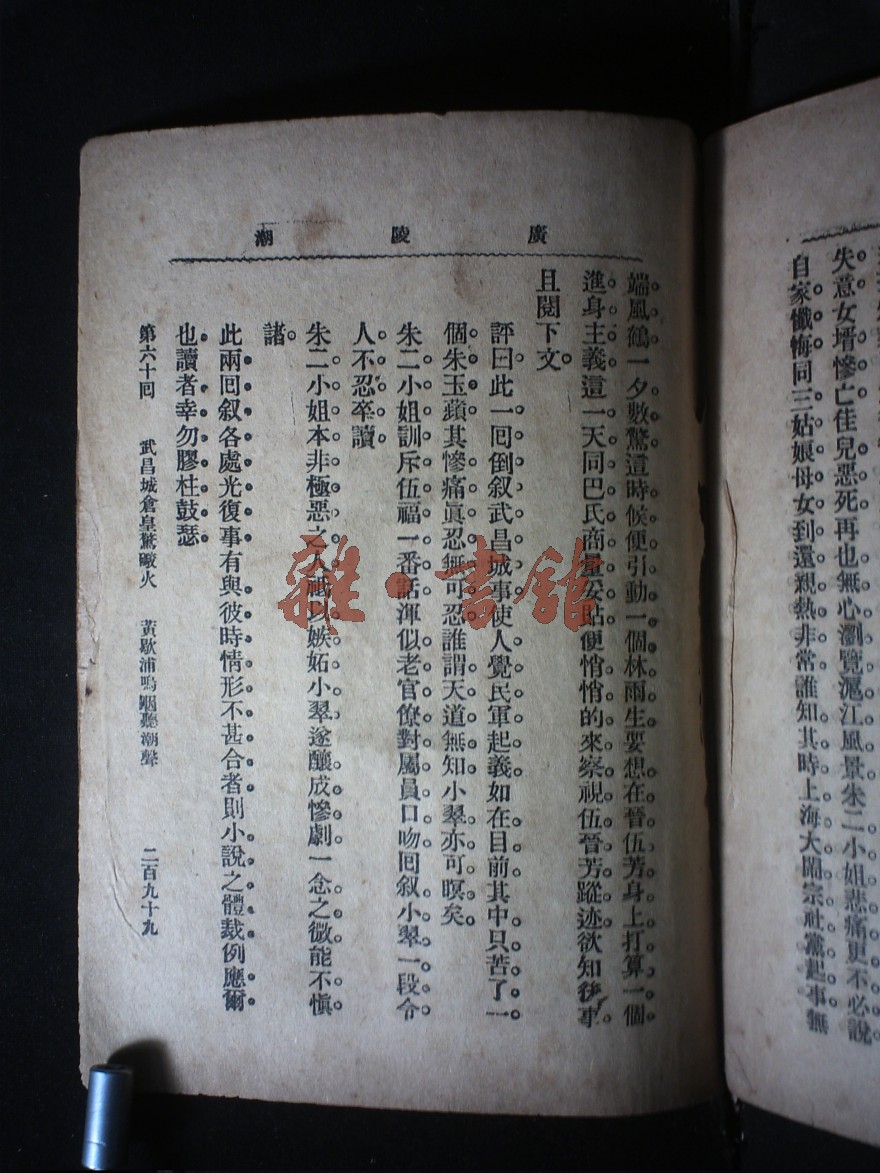 失意女壻慘亡佳兒惡死再也無心瀏覽滬江風景朱二小姐悲痛更不必說
自家懺悔同三姑娘母女到還親熱非常誰知其時上海大鬧宗社黨起事無
廣陵潮
端風鶴一夕數驚這時候便引動一個林雨生要想在晉伍芳身上打算一個
進身主義這一天同巴氏商量妥貼便悄悄的來察視伍晉芳蹤迹欲知後事
且閱下文
評曰此一回倒叙武昌城事使人覺民軍起義如在目前其中只苦了一
個朱玉蘋其慘痛眞忍無可忍誰謂天道無知小翠亦可暝矣
朱二小姐訓斥伍福一番話渾似老官僚對屬員口吻回叙小翠一段令
人不忍卒讀
朱二小姐本非極惡之人祗以嫉妬小翠遂釀成慘劇一念之微能不愼
諸
此兩回叙各處光復事有與彼時情形不甚合者則小說之體裁例應爾
也讀者幸勿膠柱鼓瑟
第六十回 武昌城倉皇驚礮火 黃歇浦嗚咽聽潮聲 二百九十九
雜·書館